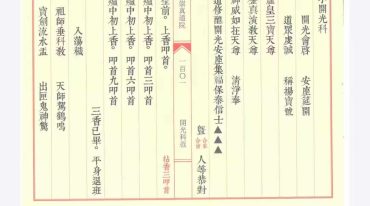 小開光科
開光會啓 安座筵開
道眾虔誠 稱揚寶號
虛皇三寶天尊
真演教天尊
神威如在天尊 清淨奉
道修醮開光安座集福保泰信士▲▲▲
暨 合家 人等恭對
前。上香叩首。 拈香三叩首
道院 一百〇一 開光科
中初上香。叩首三叩首
中初上香。叩首六叩首
中初上香。叩首九叩首
三香已畢。平身退班
入蕩穢
祖師垂科教 天師駕鶴鳴
寶劍流水盂 出匣鬼神驚